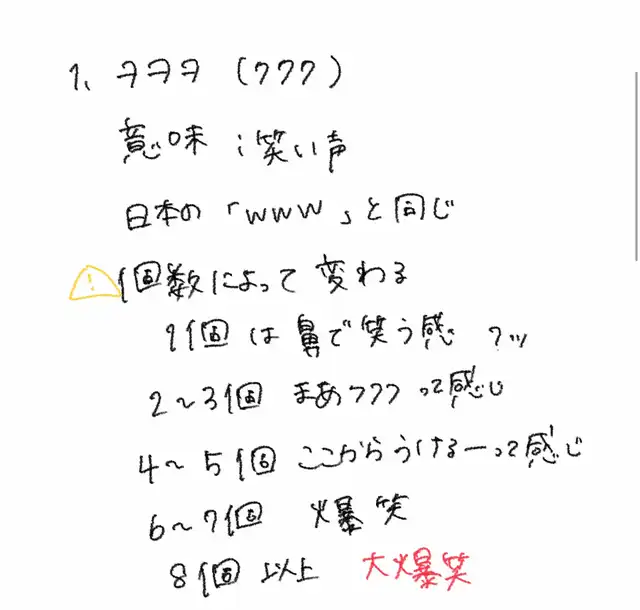 1、ㅋㅋㅋ (ククク)
意味：笑い声
日本の「www」と同じ
！個数によって変わる
1個は鼻で笑う感 フッ
2～3個 まあククク って感じ
4～5個 ここからうけるーって感じ
6～7個 爆笑
8個以上 大爆笑